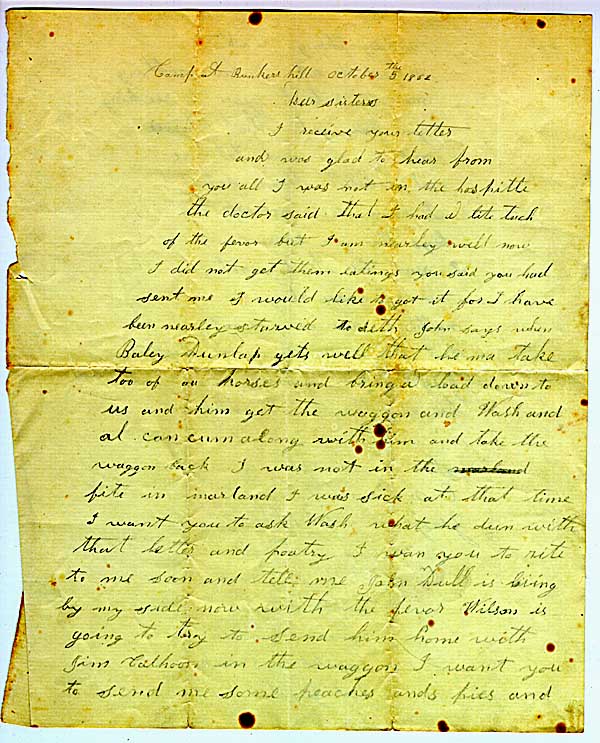 Camp at Bunkers hill October the 5 1862
Dear sisters
I receive your letter
and was glad to hear from
you all I was not in the hospitle
the doctor said that I had a lite tuch
of the fevor but I am nearley well now
I did not get them eatings you said you had
sent me I would like to got it for I have
been nearley sturved to deth John says when
Baley Dunlap gets well that he ma take
too of au horses and bring a load down to
us and him get the waggon and Wash and
al can cum along with him and take the
waggon back I was not in the
fite in marland I was sick at that time
I want you to ask Wash what he dun with
that letter and poatry I wan you to rite
to me soon and tell me John Dull is lying
by my side now with the fevor Wilson is
going to try to send him home with
Jim Calhoon in the waggon I want you
to send me some peaches ands pies and